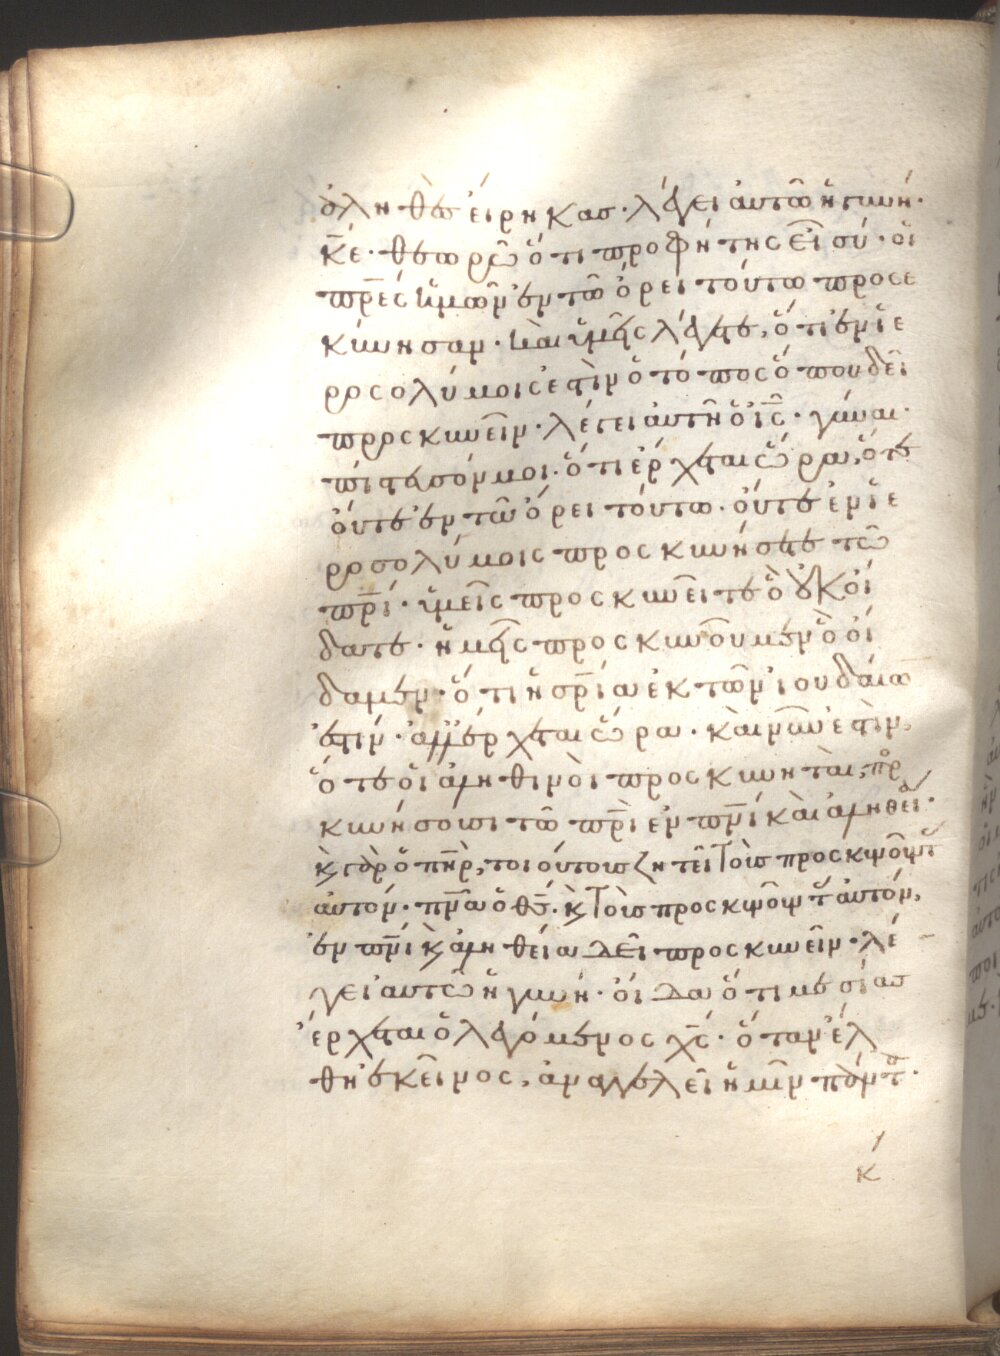 ἀληθὲσ εἴρηκασ· λέγει ἀυτῶ ἡ γυνή·
κ̅ε· θεωρῶ ὅτι προφήτης εἶ σύ· ὁι
πρ̅ες ἡμῶν ἐν τῶ ὄρει τούτω προσε
κύνησαν· και ὑμεῖς λέγετε, ὅτι ἐν ἱε
ροσολύμοις ἐστὶν ὁ τόπος ὅπου δεῖ
προσκυνεῖν· λέγει ἀυτῆ ὁ ι̅ς· γύναι·
πίστευσόν μοι· ὅτι ἔρχεται ὥρα, ὅτε
ὄυτε ἐν τῶ ὄρει τούτω· ὄυτε ἐν ἱε
ροσολύμοις προσκυνήσετε τῶ
πρ̅ί· ὑμεῖς προσκυνεῖτε ὃ ὀυκ ὄι
δατε· ἡμεῖς προσκυνοῦμεν ὃ ὄι
δαμεν· ὅτι ἡ σρ̅ία ἐκ τῶν ἰουδάιω̅
ἐστίν· ἀλλ' ἔρχεται ὥρα· κὰι νῦν ἐστὶν,
ὅτε ὁι ἀληθινὸι προσκυνητὰι, πρ
κυνήσουσι τῶ πρ̅ὶ ἐν πν̅ί κὰι ἀληθεί·
κ γὰρ ὁ πη̅ρ, τοιούτουσ ζητεῖ τοὺσ προσκυνοῦντ
ἀυτόν· πν̅α ὁ θ̅ς· κ τοὺσ προσκυνοῦντ ἀυτόν,
ἐν πν̅ί κ ἀληθεία δεῖ προσκυνεῖν· λέ
γει ἀυτῶ ἡ γυνή· ὄιδα ὅτι μεσίασ
ἔρχεται ὁ λεγόμενος χ̅ς· ὅταν ἔλ
θη ἐκεῖνος, ἀναγγελεῖ ἡμῖν πάντ·
κ